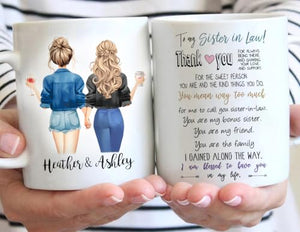 Heather & Ashley
To my Sister in Law!
Thank you
FOR ALWAYS
BEING THERE
AND SHARING
YOUR LOVE
AND SUPPORT.
FOR THE SWEET PERSON
YOU ARE AND THE KIND THINGS YOU DO.
You mean way too much
for me to call you sister-in-law.
You are my bonus sister.
You are my friend.
You are the family
I GAINED ALONG THE WAY.
I am blessed to have you
in my life.